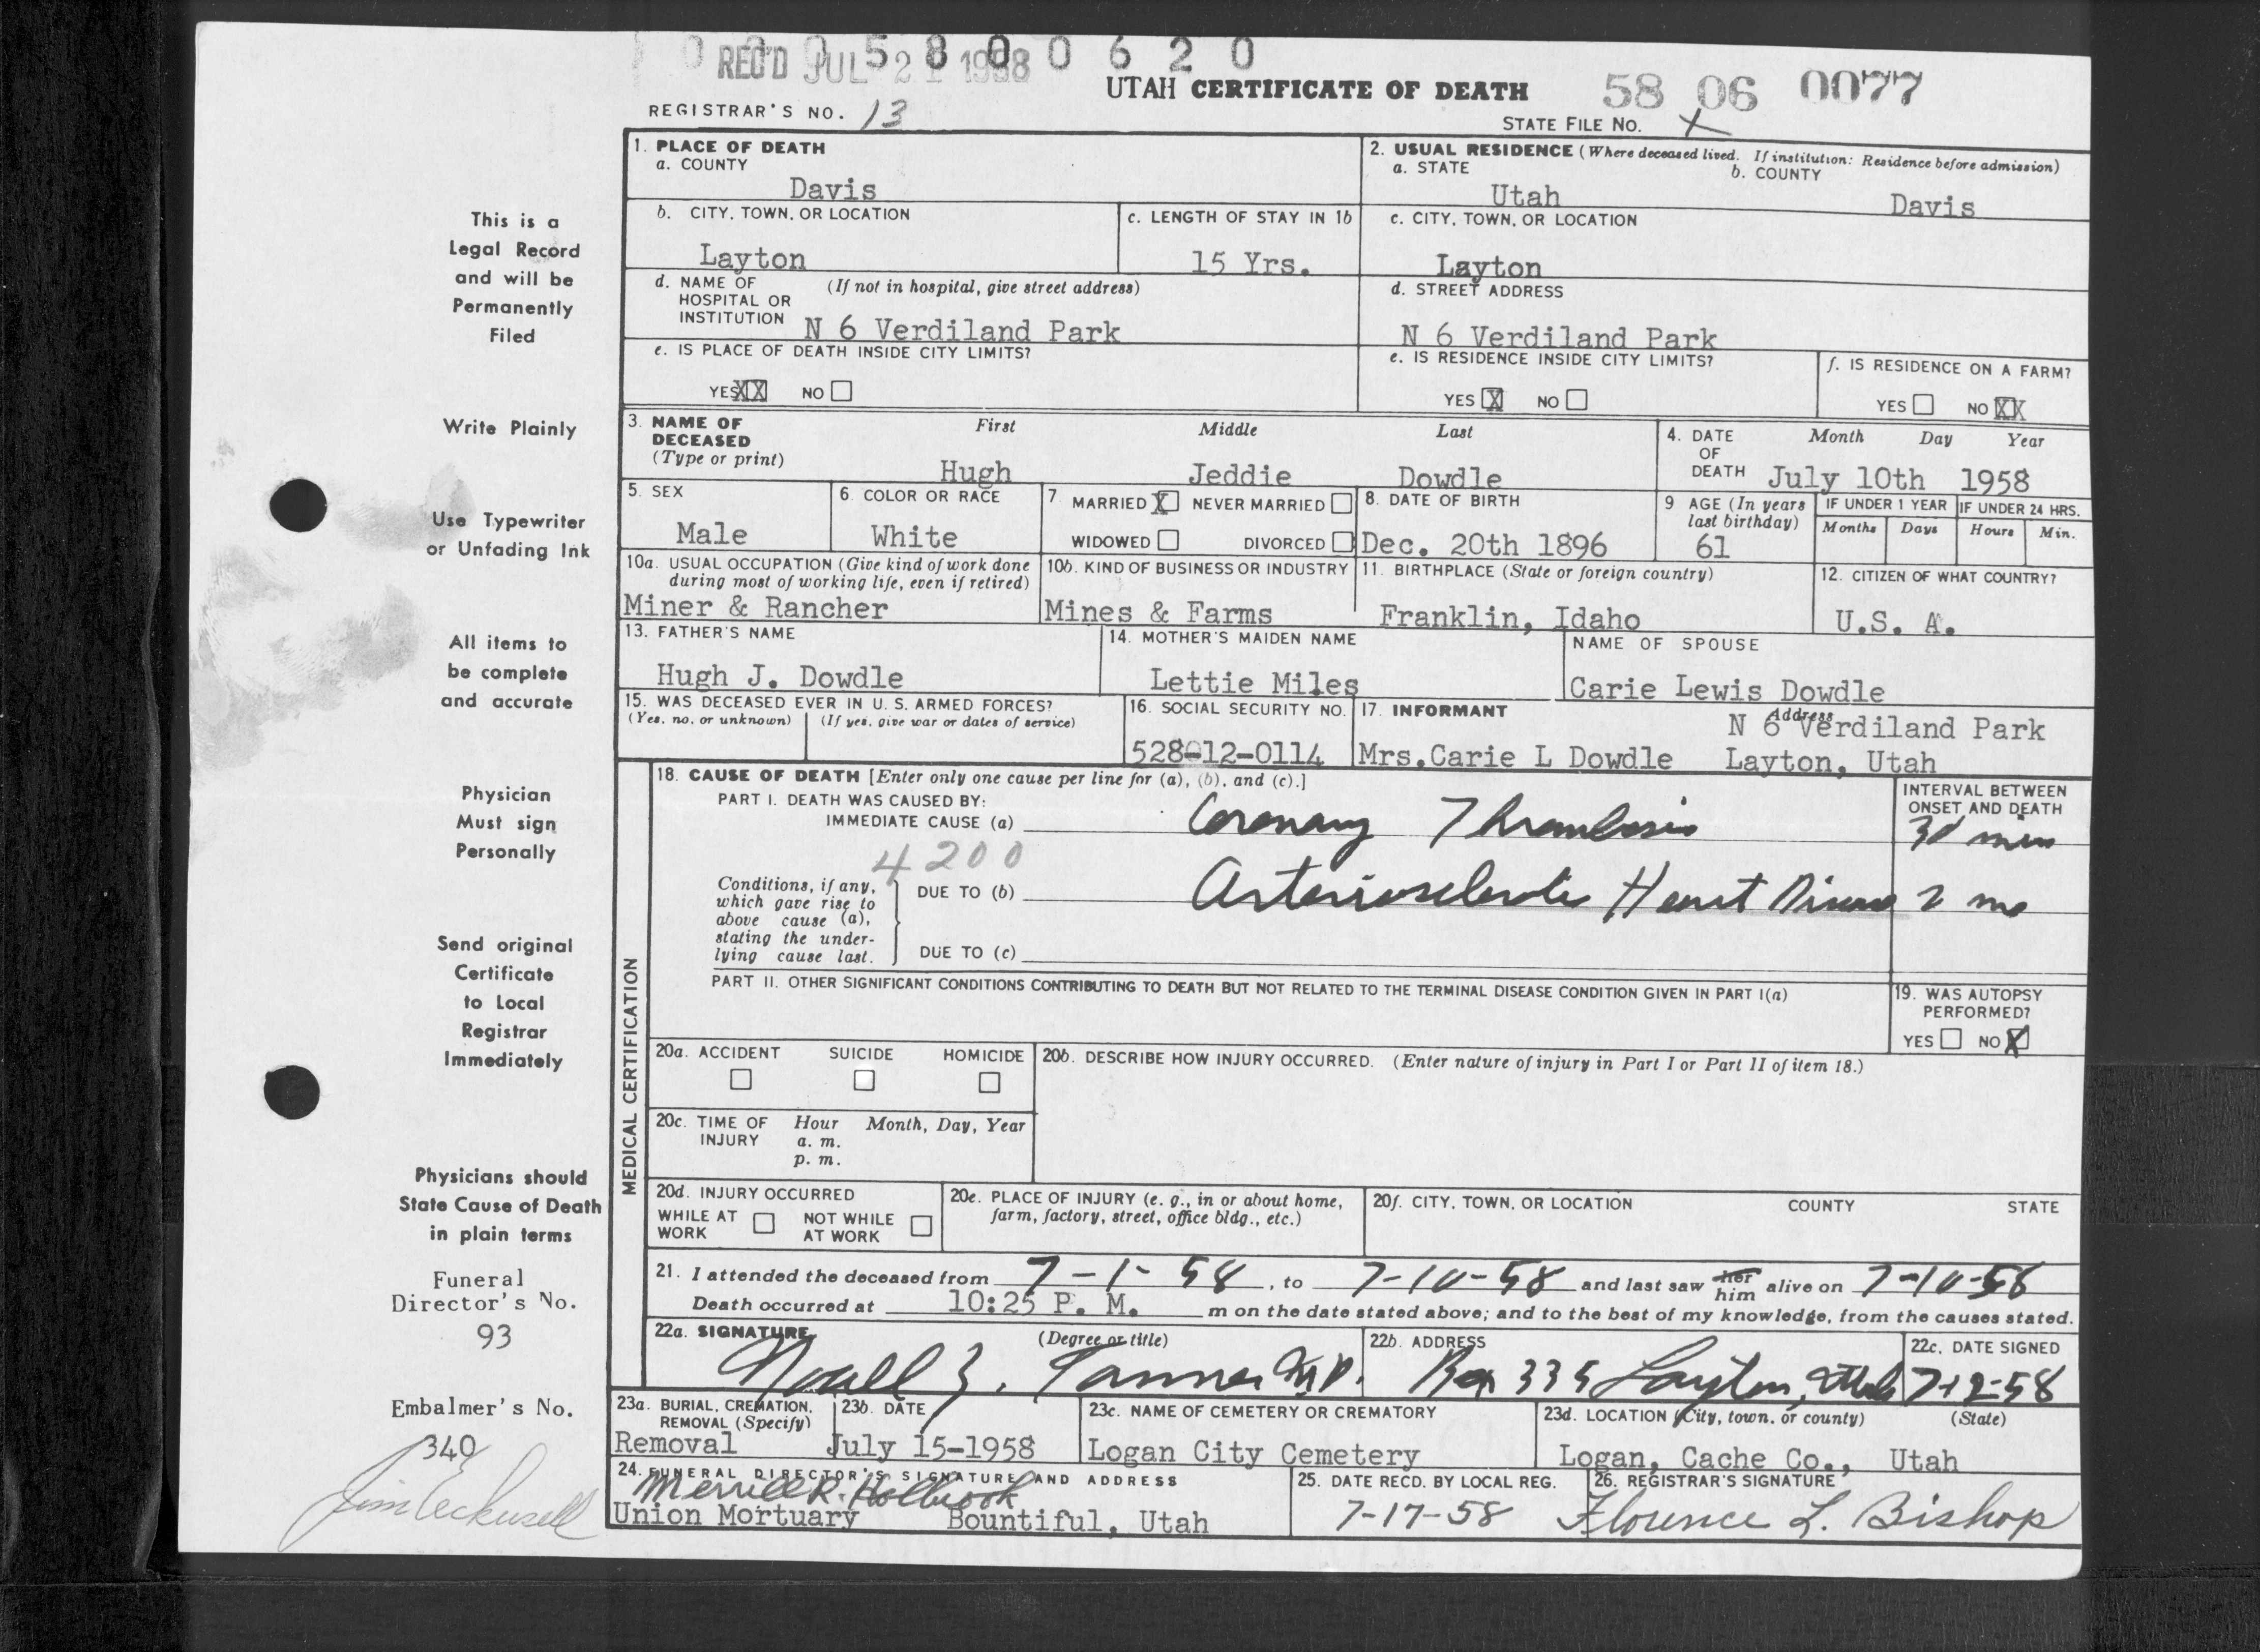 0 0 0 5 8 0 0 6 2 0
REC'D JUL 2 1958
UTAH CERTIFICATE OF DEATH
58 06 0077
REGISTRAR'S NO. 13
STATE FILE NO. X
This is a
Legal Record
and will be
Permanently
Filed
Write Plainly
Use Typewriter
or Unfading Ink
All items to
be complete
and accurate
Physician
Must sign
Personally
Send original
Certificate
to Local
Registrar
Immediately
Physicians should
State Cause of Death
in plain terms
Funeral
Director's No.
93
Embalmer's No.
340
1. PLACE OF DEATH
a. COUNTY
Davis
2. USUAL RESIDENCE (Where deceased lived. If institution: Residence before admission)
a. STATE b. COUNTY
Utah Davis
b. CITY, TOWN, OR LOCATION
Layton
c. LENGTH OF STAY IN 1b
15 Yrs.
c. CITY, TOWN, OR LOCATION
Layton
d. NAME OF (If not in hospital, give street address)
HOSPITAL OR
INSTITUTION N 6 Verdiland Park
d. STREET ADDRESS
N 6 Verdiland Park
e. IS PLACE OF DEATH INSIDE CITY LIMITS?
YES XX NO
e. IS RESIDENCE INSIDE CITY LIMITS?
YES X NO
f. IS RESIDENCE ON A FARM?
YES NO XX
3. NAME OF First Middle Last
DECEASED
(Type or print)
Hugh Jeddie Dowdle
4. DATE Month Day Year
OF
DEATH July 10th 1958
5. SEX
Male
6. COLOR OR RACE
White
7. MARRIED X NEVER MARRIED
WIDOWED DIVORCED
8. DATE OF BIRTH
Dec. 20th 1896
9 AGE (In years
last birthday)
61
IF UNDER 1 YEAR IF UNDER 24 HRS.
Months Days Hours Min.
10a. USUAL OCCUPATION (Give kind of work done
during most of working life, even if retired)
Miner & Rancher
10b. KIND OF BUSINESS OR INDUSTRY
Mines & Farms
11. BIRTHPLACE (State or foreign country)
Franklin, Idaho
12. CITIZEN OF WHAT COUNTRY?
U.S. A.
13. FATHER'S NAME
Hugh J. Dowdle
14. MOTHER'S MAIDEN NAME
Lettie Miles
NAME OF SPOUSE
Carie Lewis Dowdle
15. WAS DECEASED EVER IN U. S. ARMED FORCES?
(Yes, no, or unknown) (If yes, give war or dates of service)
16. SOCIAL SECURITY NO.
528-12-0114
17. INFORMANT Address
N 6 Verdiland Park
Mrs.Carie L Dowdle Layton, Utah
MEDICAL CERTIFICATION
18. CAUSE OF DEATH [Enter only one cause per line for (a), (b), and (c).]
INTERVAL BETWEEN
ONSET AND DEATH
PART I. DEATH WAS CAUSED BY:
IMMEDIATE CAUSE (a) Coronary Thrombosis 30 min
4200
Conditions, if any,
which gave rise to
above cause (a),
stating the under-
lying cause last.
DUE TO (b) Arteriosclerotic Heart Disease 2 mo
DUE TO (c)
PART II. OTHER SIGNIFICANT CONDITIONS CONTRIBUTING TO DEATH BUT NOT RELATED TO THE TERMINAL DISEASE CONDITION GIVEN IN PART I(a)
19. WAS AUTOPSY
PERFORMED?
YES NO X
20a. ACCIDENT SUICIDE HOMICIDE
20b. DESCRIBE HOW INJURY OCCURRED. (Enter nature of injury in Part I or Part II of item 18.)
20c. TIME OF Hour Month, Day, Year
INJURY a. m.
p. m.
20d. INJURY OCCURRED
WHILE AT NOT WHILE
WORK AT WORK
20e. PLACE OF INJURY (e. g., in or about home,
farm, factory, street, office bldg., etc.)
20f. CITY, TOWN, OR LOCATION COUNTY STATE
21. I attended the deceased from 7-1-58, to 7-10-58 and last saw her him alive on 7-10-58
Death occurred at 10:25 P. M. m on the date stated above; and to the best of my knowledge, from the causes stated.
22a. SIGNATURE (Degree or title)
Noall Z. Tanner M.D.
22b. ADDRESS
Box 335 Layton, Utah
22c. DATE SIGNED
7-12-58
23a. BURIAL, CREMATION,
REMOVAL (Specify)
Removal
23b. DATE
July 15-1958
23c. NAME OF CEMETERY OR CREMATORY
Logan City Cemetery
23d. LOCATION (City, town, or county) (State)
Logan, Cache Co., Utah
24. FUNERAL DIRECTOR'S SIGNATURE AND ADDRESS
Merrill R. Holbrook
Union Mortuary Bountiful, Utah
25. DATE RECD. BY LOCAL REG.
7-17-58
26. REGISTRAR'S SIGNATURE
Florence L. Bishop